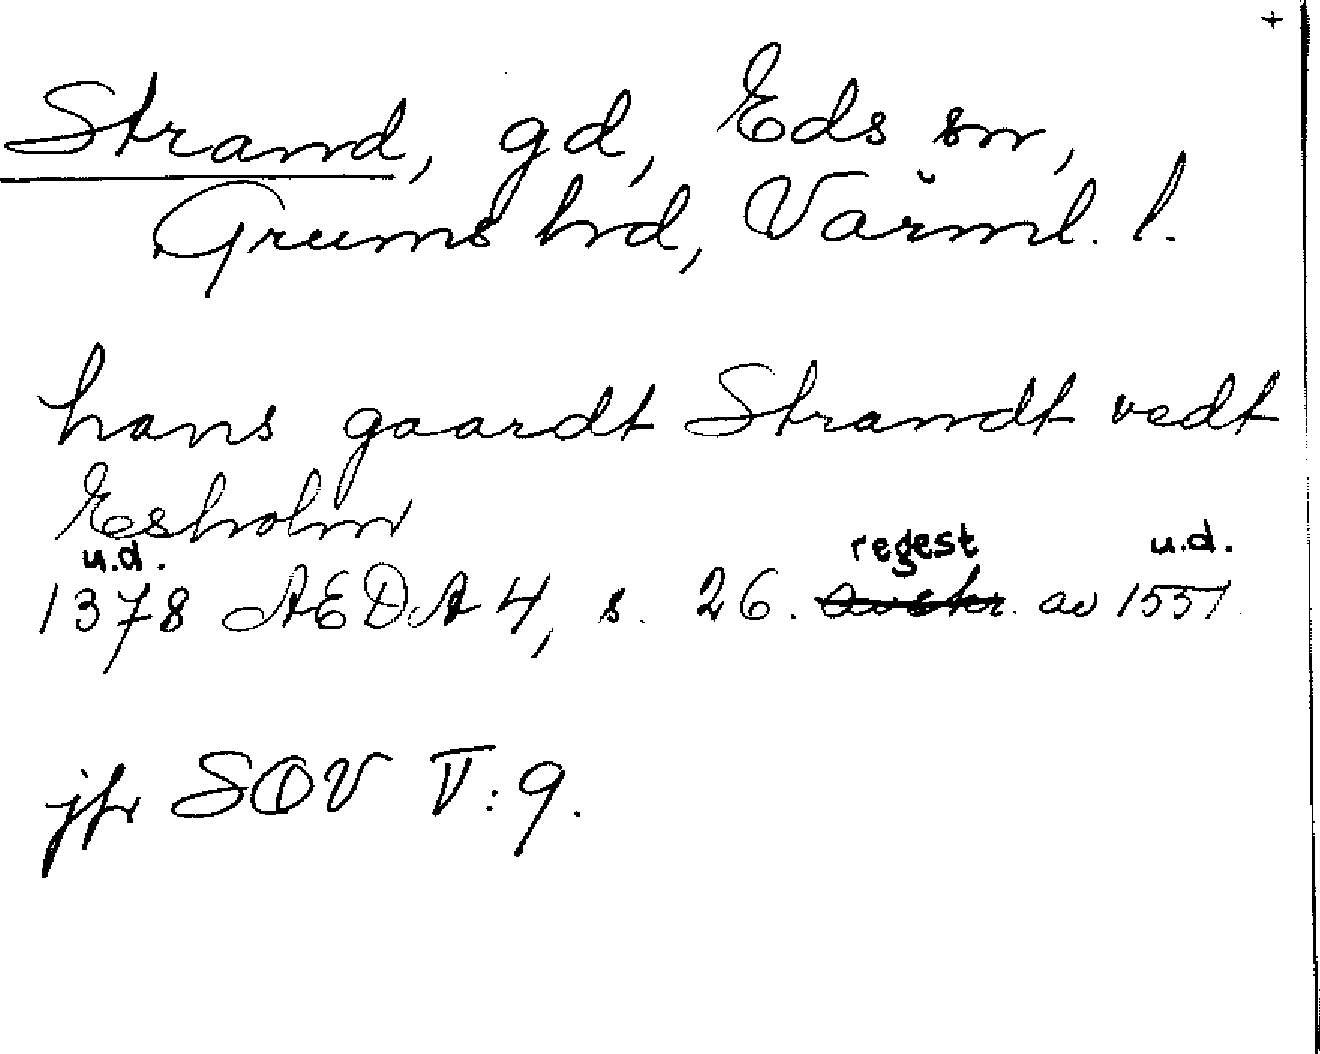 +
Strand, gd, Eds sn,
Grums hd, Värml. l.
hans gaardt Strandt vedt
Esholm
u.d. regest u.d.
1378 AEDA 4, s. 26. avskr. av 1551
jfr SOV V:9.